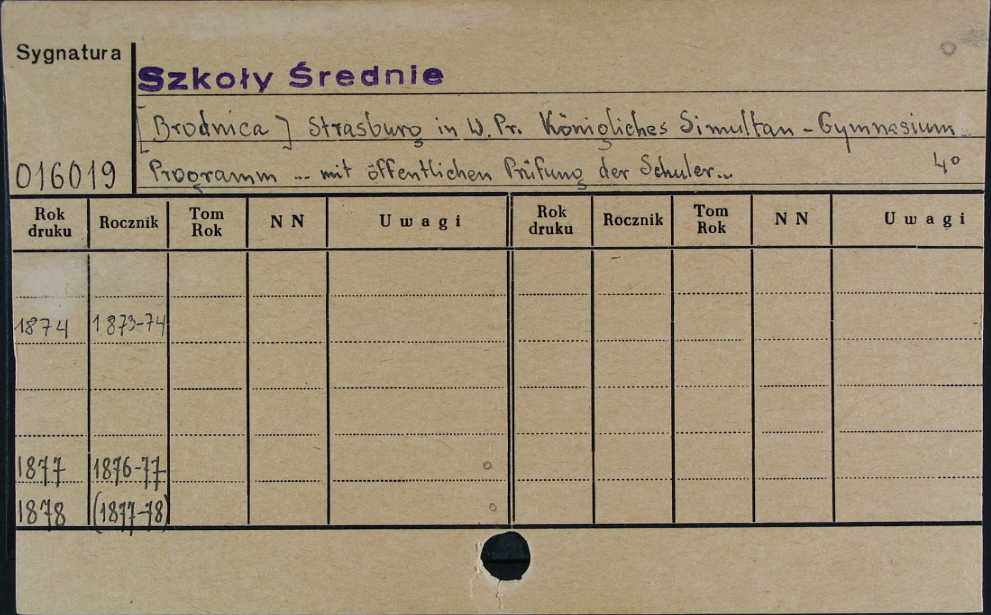 Sygnatura
Szkoły Średnie
[Brodnica] Strasburg in W. Pr. Königliches Simultan-Gymnasium
016019 Programm ... mit öffentlichen Prüfung der Schuler... 4°
Rok druku Rocznik Tom Rok N N Uwagi Rok druku Rocznik Tom Rok N N Uwagi
1874 1873-74
1877 1876-77
1878 (1877-78)